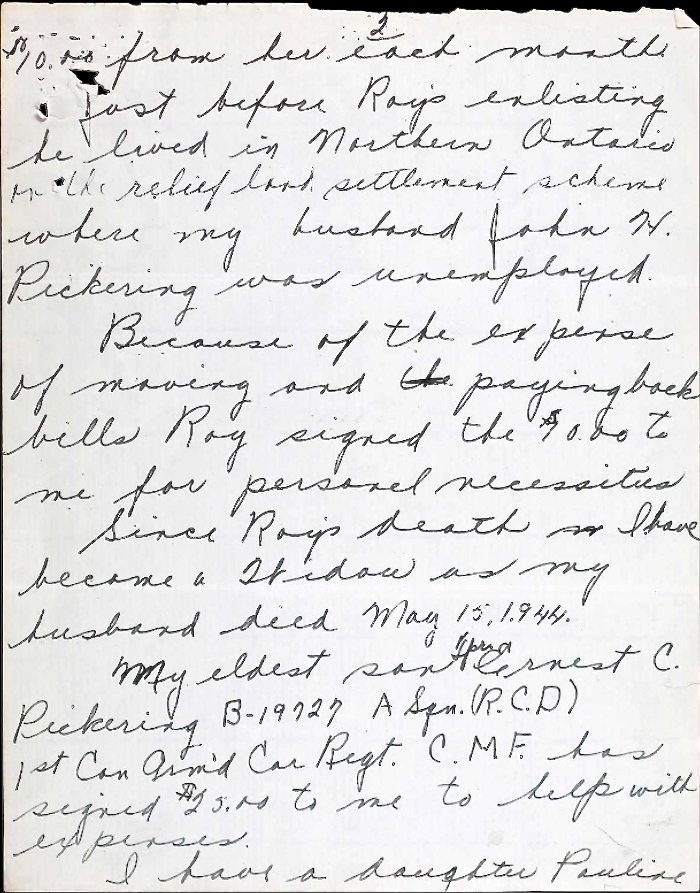 2
$10.00 from her each month
Just before Roys enlisting
he lived in Northern Ontario
on the relief land settlement scheme
where my husband John H.
Pickering was unemployed.
Because of the expense
of moving and paying back
bills Roy signed the $10.00 to
me for personel necessitus
Since Roys death I have
become a Widow as my
husband died May 15, 1944.
My eldest son Ernest C.
Pickering B-19727 A Sqn. (R.C.D)
1st Can Arm'd Car Regt. C.M.F. has
signed $25.00 to me to help with
expenses.
I have a daughter Pauline